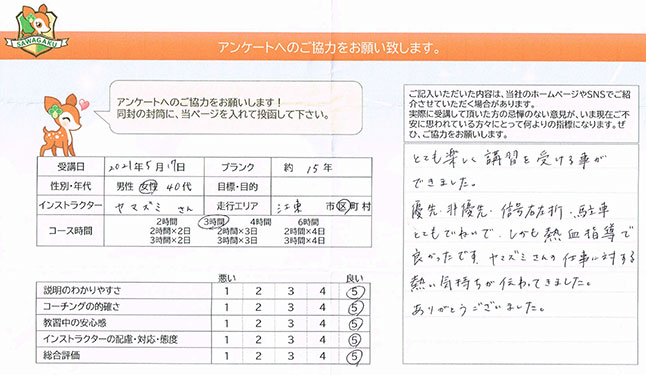 SAWAGAKU
アンケートへのご協力をお願い致します。
アンケートへのご協力をお願いします!
同封の封筒に、当ページを入れて投函して下さい。
受講日 2021年5月17日 ブランク 約 15年
性別・年代 男性 女性 40代 目標・目的
インストラクター ヤマズミ さん 走行エリア 江東 市区町村
コース時間
2時間 3時間 4時間 6時間
2時間×2日 2時間×3日 2時間×4日
3時間×2日 3時間×3日 3時間×4日
悪い 良い
説明のわかりやすさ 1 2 3 4 5
コーチングの的確さ 1 2 3 4 5
教習中の安心感 1 2 3 4 5
インストラクターの配慮・対応・態度 1 2 3 4 5
総合評価 1 2 3 4 5
ご記入いただいた内容は、当社のホームページやSNSでご紹
介させていただく場合があります。
実際に受講して頂いた方の忌憚のない意見が、いま現在ご不
安に思われている方々にとって何よりの指標になります。ぜ
ひ、ご協力をお願いします。
とても楽しく講習を受ける事が
できました。
優先・非優先、信号右左折、駐車
とてもていねいで、しかも熱血指導で
良かったです。ヤマズミさんの仕事に対する
熱い気持ちが伝わってきました。
ありがとうございました。